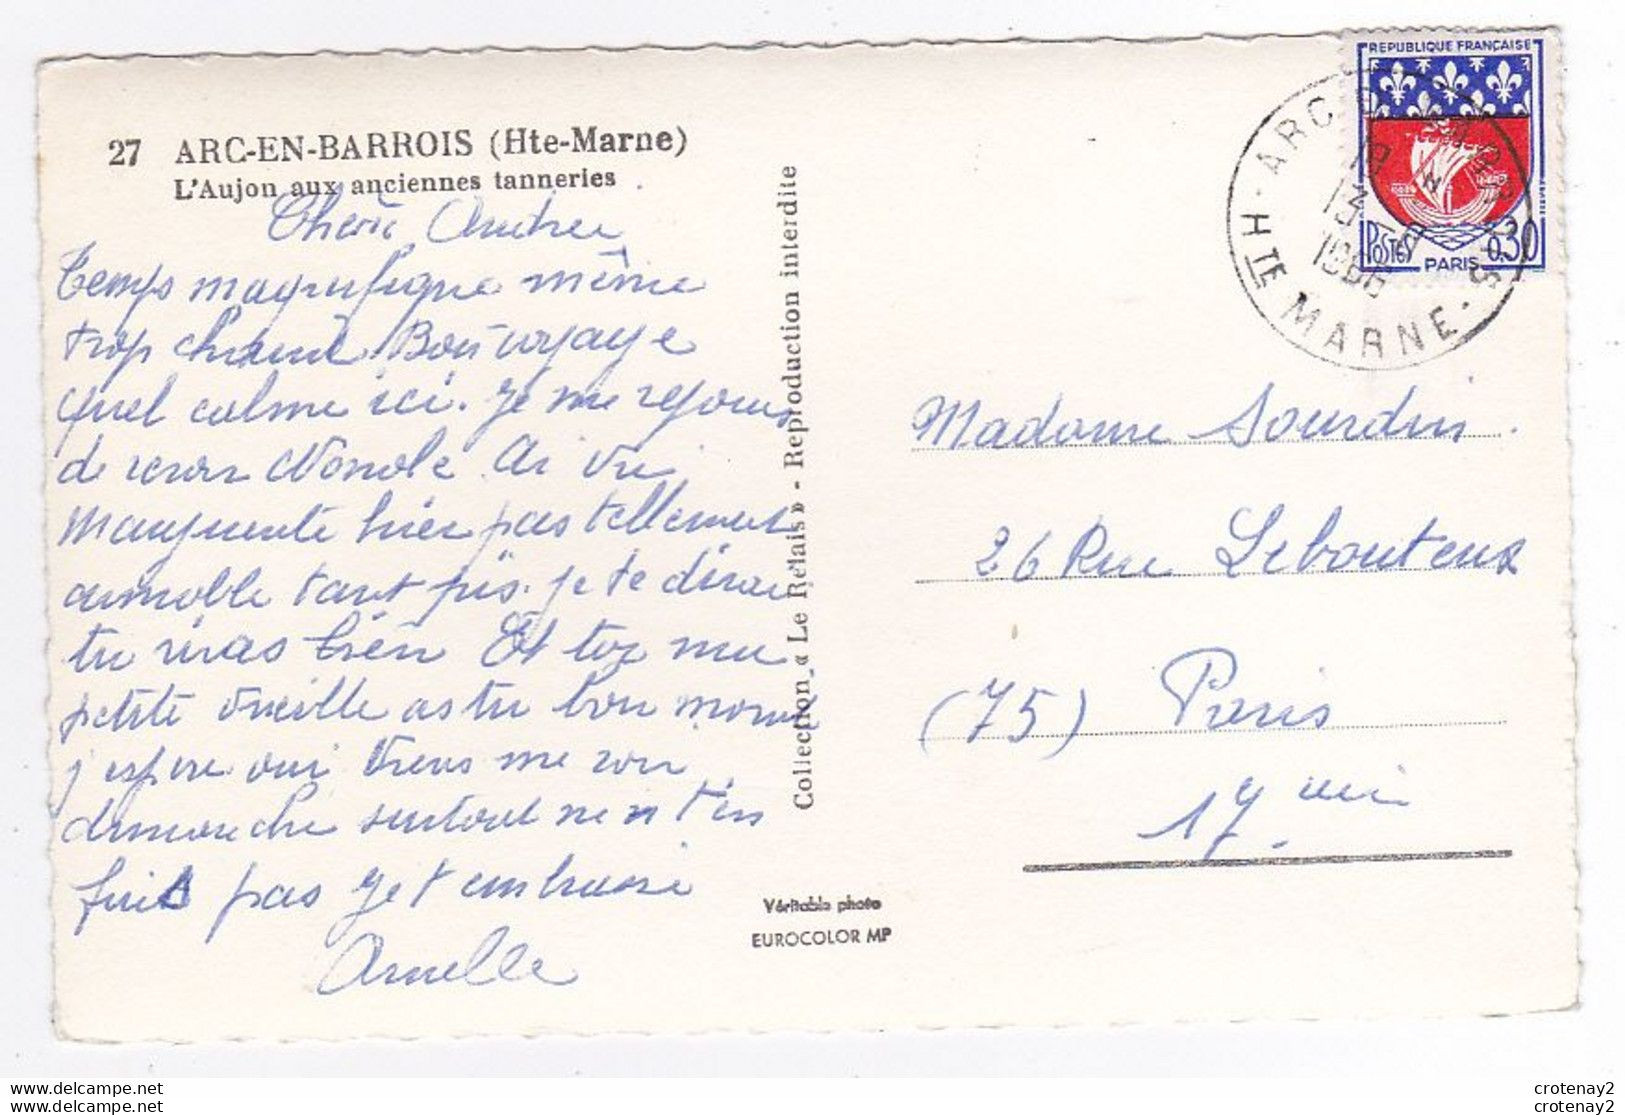 27 ARC-EN-BARROIS (Hte-Marne)
L'Aujon aux anciennes tanneries
Cherie Andree
temps magnifique même
trop chaud Bon voyage
Quel calme ici. Je me rejouis
de revoir Ai vu
Marguerite hier pas tellement
aimable tant pis. je te dirai
tu iras bien Et toi ma
petite vieille as tu bon moral
j'espere oui viens me voir
dimanche surtout ne m t'en
fais pas Je t embrasse
Armelle
Collection « Le Relais » - Reproduction interdite
Véritable photo
EUROCOLOR MP
REPUBLIQUE FRANÇAISE
POSTES 0,30
PARIS
ARC-EN-BARROIS
HTE MARNE
Madame Sourdin.
26 Rue Lebouteux
(75) Paris
17 eme
delcampe.net
delcampe.net
crotenay2
crotenay2